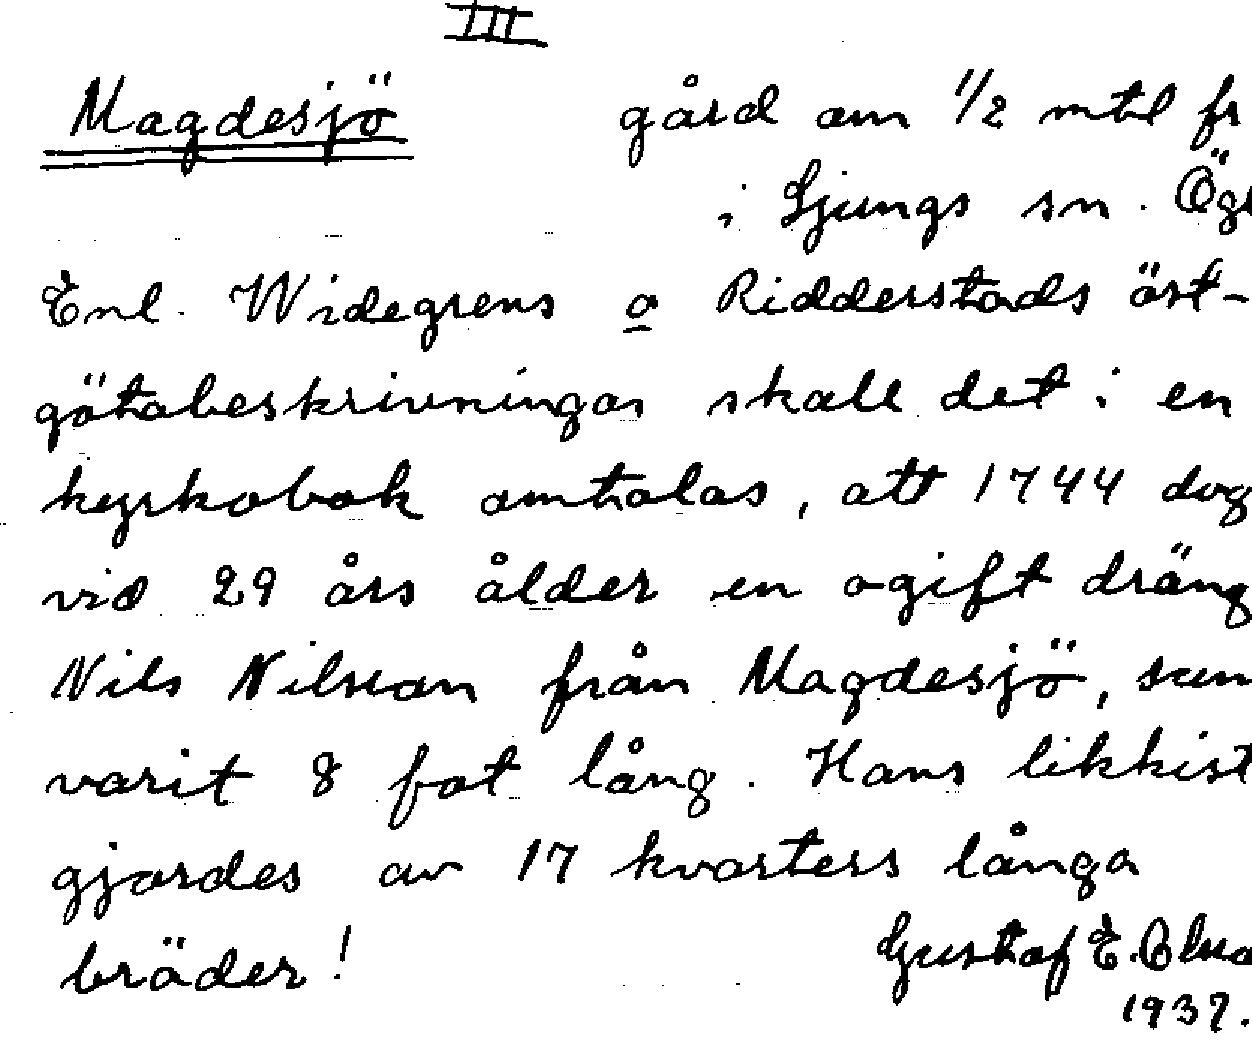 III
Magdesjö gård om 1/2 mtl fr
i Ljungs sn. Ögt
Enl. Widegrens o Ridderstads öst-
götabeskrivningar skall det i en
kyrkobok omtalas, att 1744 dog
vid 29 års ålder en ogift dräng
Nils Nilsson från Magdesjö, som
varit 8 fot lång. Hans likkist
gjordes av 17 kvarters långa
bräder!
Gustaf E. Olsso
1937.